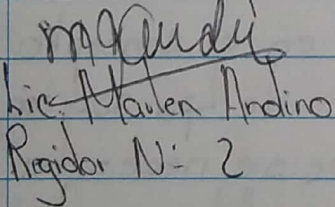 Lic. Marlen Andino
Regidor N: 2